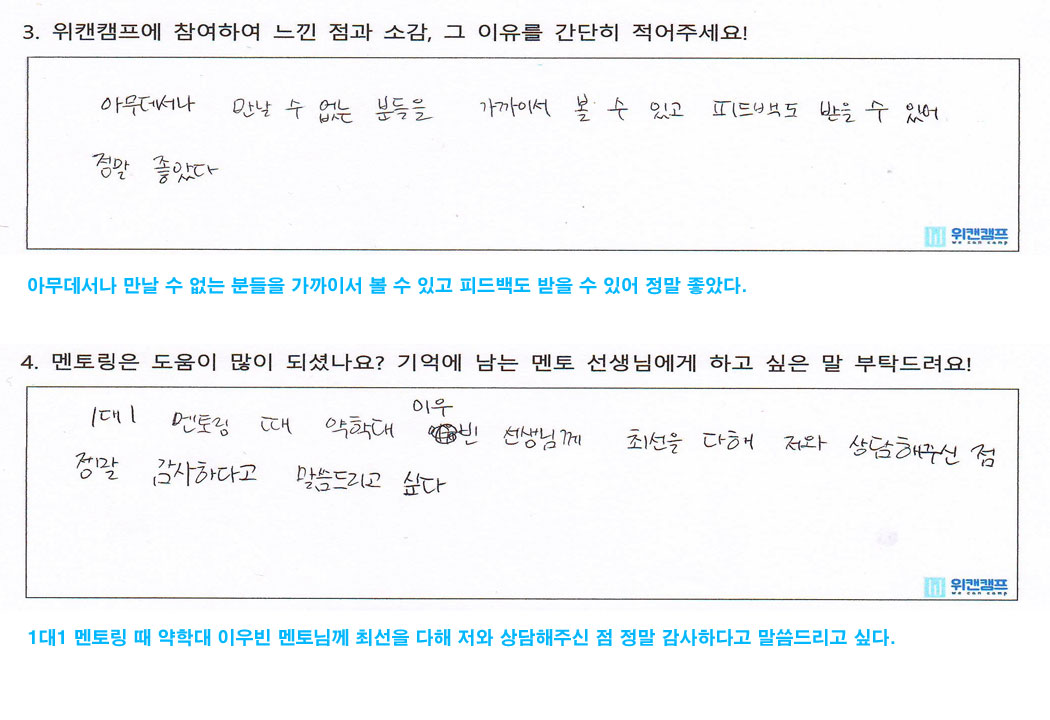 3. 위캔캠프에 참여하여 느낀 점과 소감, 그 이유를 간단히 적어주세요!
아무데서나 만날 수 없는 분들을 가까이서 볼 수 있고 피드백도 받을 수 있어
정말 좋았다
위캔캠프
we can camp
아무데서나 만날 수 없는 분들을 가까이서 볼 수 있고 피드백도 받을 수 있어 정말 좋았다.
4. 멘토링은 도움이 많이 되셨나요? 기억에 남는 멘토 선생님에게 하고 싶은 말 부탁드려요!
1대1 멘토링 때 약학대 이우빈 선생님께 최선을 다해 저와 상담해주신 점
정말 감사하다고 말씀드리고 싶다
위캔캠프
we can camp
1대1 멘토링 때 약학대 이우빈 멘토님께 최선을 다해 저와 상담해주신 점 정말 감사하다고 말씀드리고 싶다.